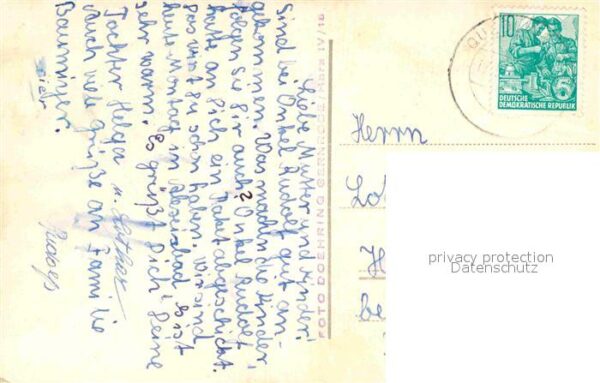 Liebe Mutter und Kinder!
Sind bei Onkel Rudolf gut an-
gekommen. Was machen die Kinder,
folgen sie Dir auch? Onkel Rudolf
hatte an Dich ein Paket abgeschickt.
Das wirst Du schon haben. Wir sind
heute Montag im es ist
sehr warm. Es grüßt Dich Deine
Tochter Helga u. Lothar
auch viele Grüße an Familie
Bauminer.
FOTO DOEHRING GERNRODE Harz IV/18
10
DEUTSCHE
DEMOKRATISCHE REPUBLIK
5
QU
Herrn
Lo
H
be
privacy protection
Datenschutz